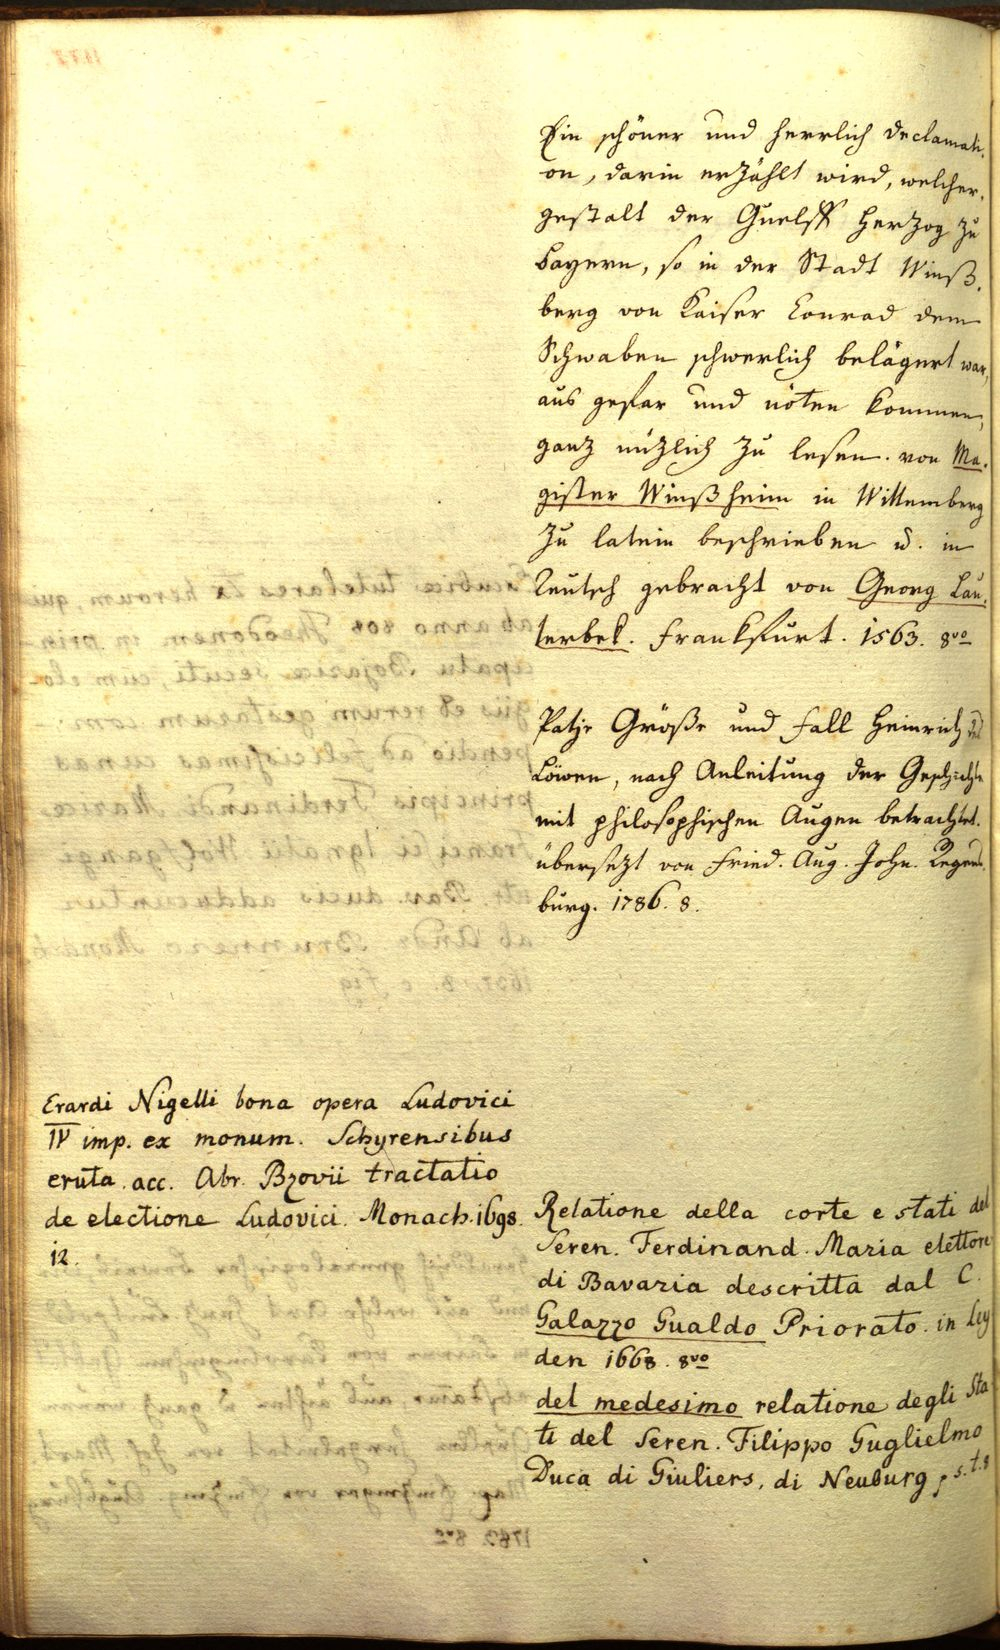 Ein schöner und herrlich Declamati-
on, darin erzählt wird, welcher-
gestalt der Guelff Herzog zu
Bayern, so in der Stadt Winß-
berg von Kaiser Conrad dem
Schwaben schwerlich belägert war,
aus gefar und nöten kommen,
ganz nüzlich zu lesen. von Ma-
gister Winßheim in Wittemberg
zu latein beschrieben u. in
Teutsch gebracht von Georg Lau-
terbek. Frankfurt. 1563. 8vo
Patje Größe und Fall Heinrich des
Löwen, nach Anleitung der Geschichte
mit philosophischen Augen betrachtet.
übersezt von Fried. Aug. John. Regens-
burg. 1786. 8.
Erardi Nigelli bona opera Ludovici
IV imp. ex monum. Schyrensibus
eruta. acc. Abr. Bzovii tractatio
de electione Ludovici. Monach. 1698.
12.
Relatione della corte e stati del
Seren. Ferdinand. Maria elettore
di Bavaria descritta dal C.
Galazzo Gualdo Priorato. in Ley
den 1668. 8vo
del medesimo relatione degli Sta
ti del Seren. Filippo Guglielmo
Duca di Giuliers, di Neuburg